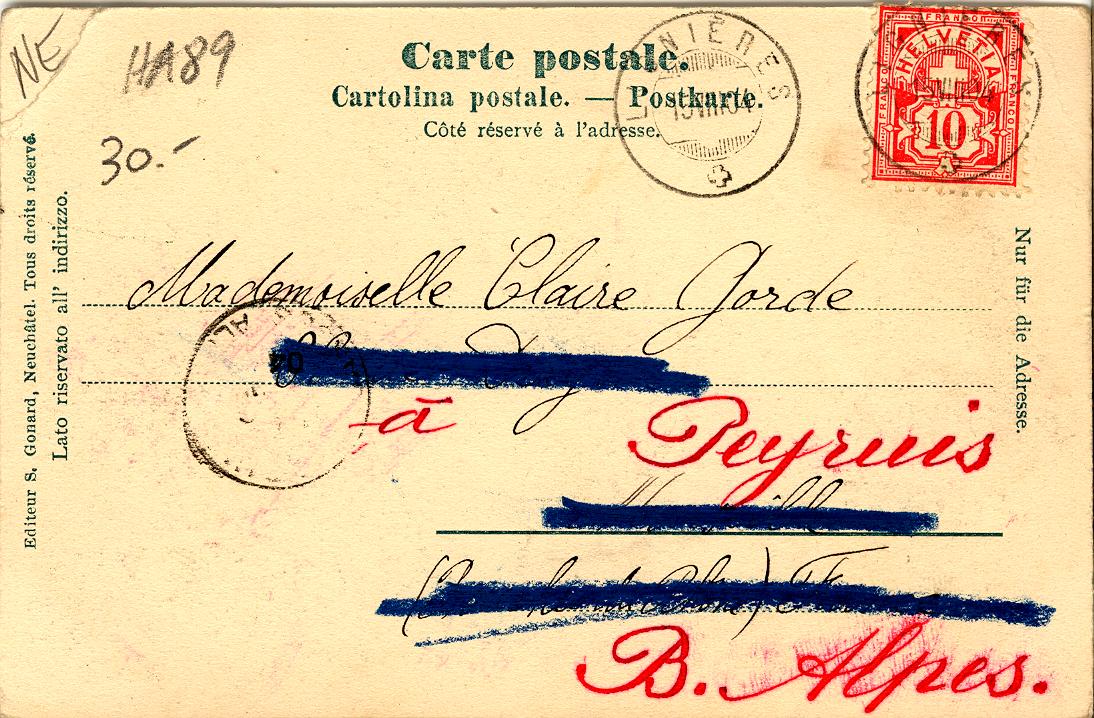 NE
HA89
30.-
Carte postale.
Cartolina postale. — Postkarte.
Côté réservé à l'adresse.
LIGNIÈRES
FRANCO
HELVETIA
FRANCO
FRANCO
10
Editeur S. Gonard, Neuchâtel. Tous droits réservé.
Lato riservato all' indirizzo.
Nur für die Adresse.
Mademoiselle Claire Gorde
04
à Peyruis
B. Alpes.